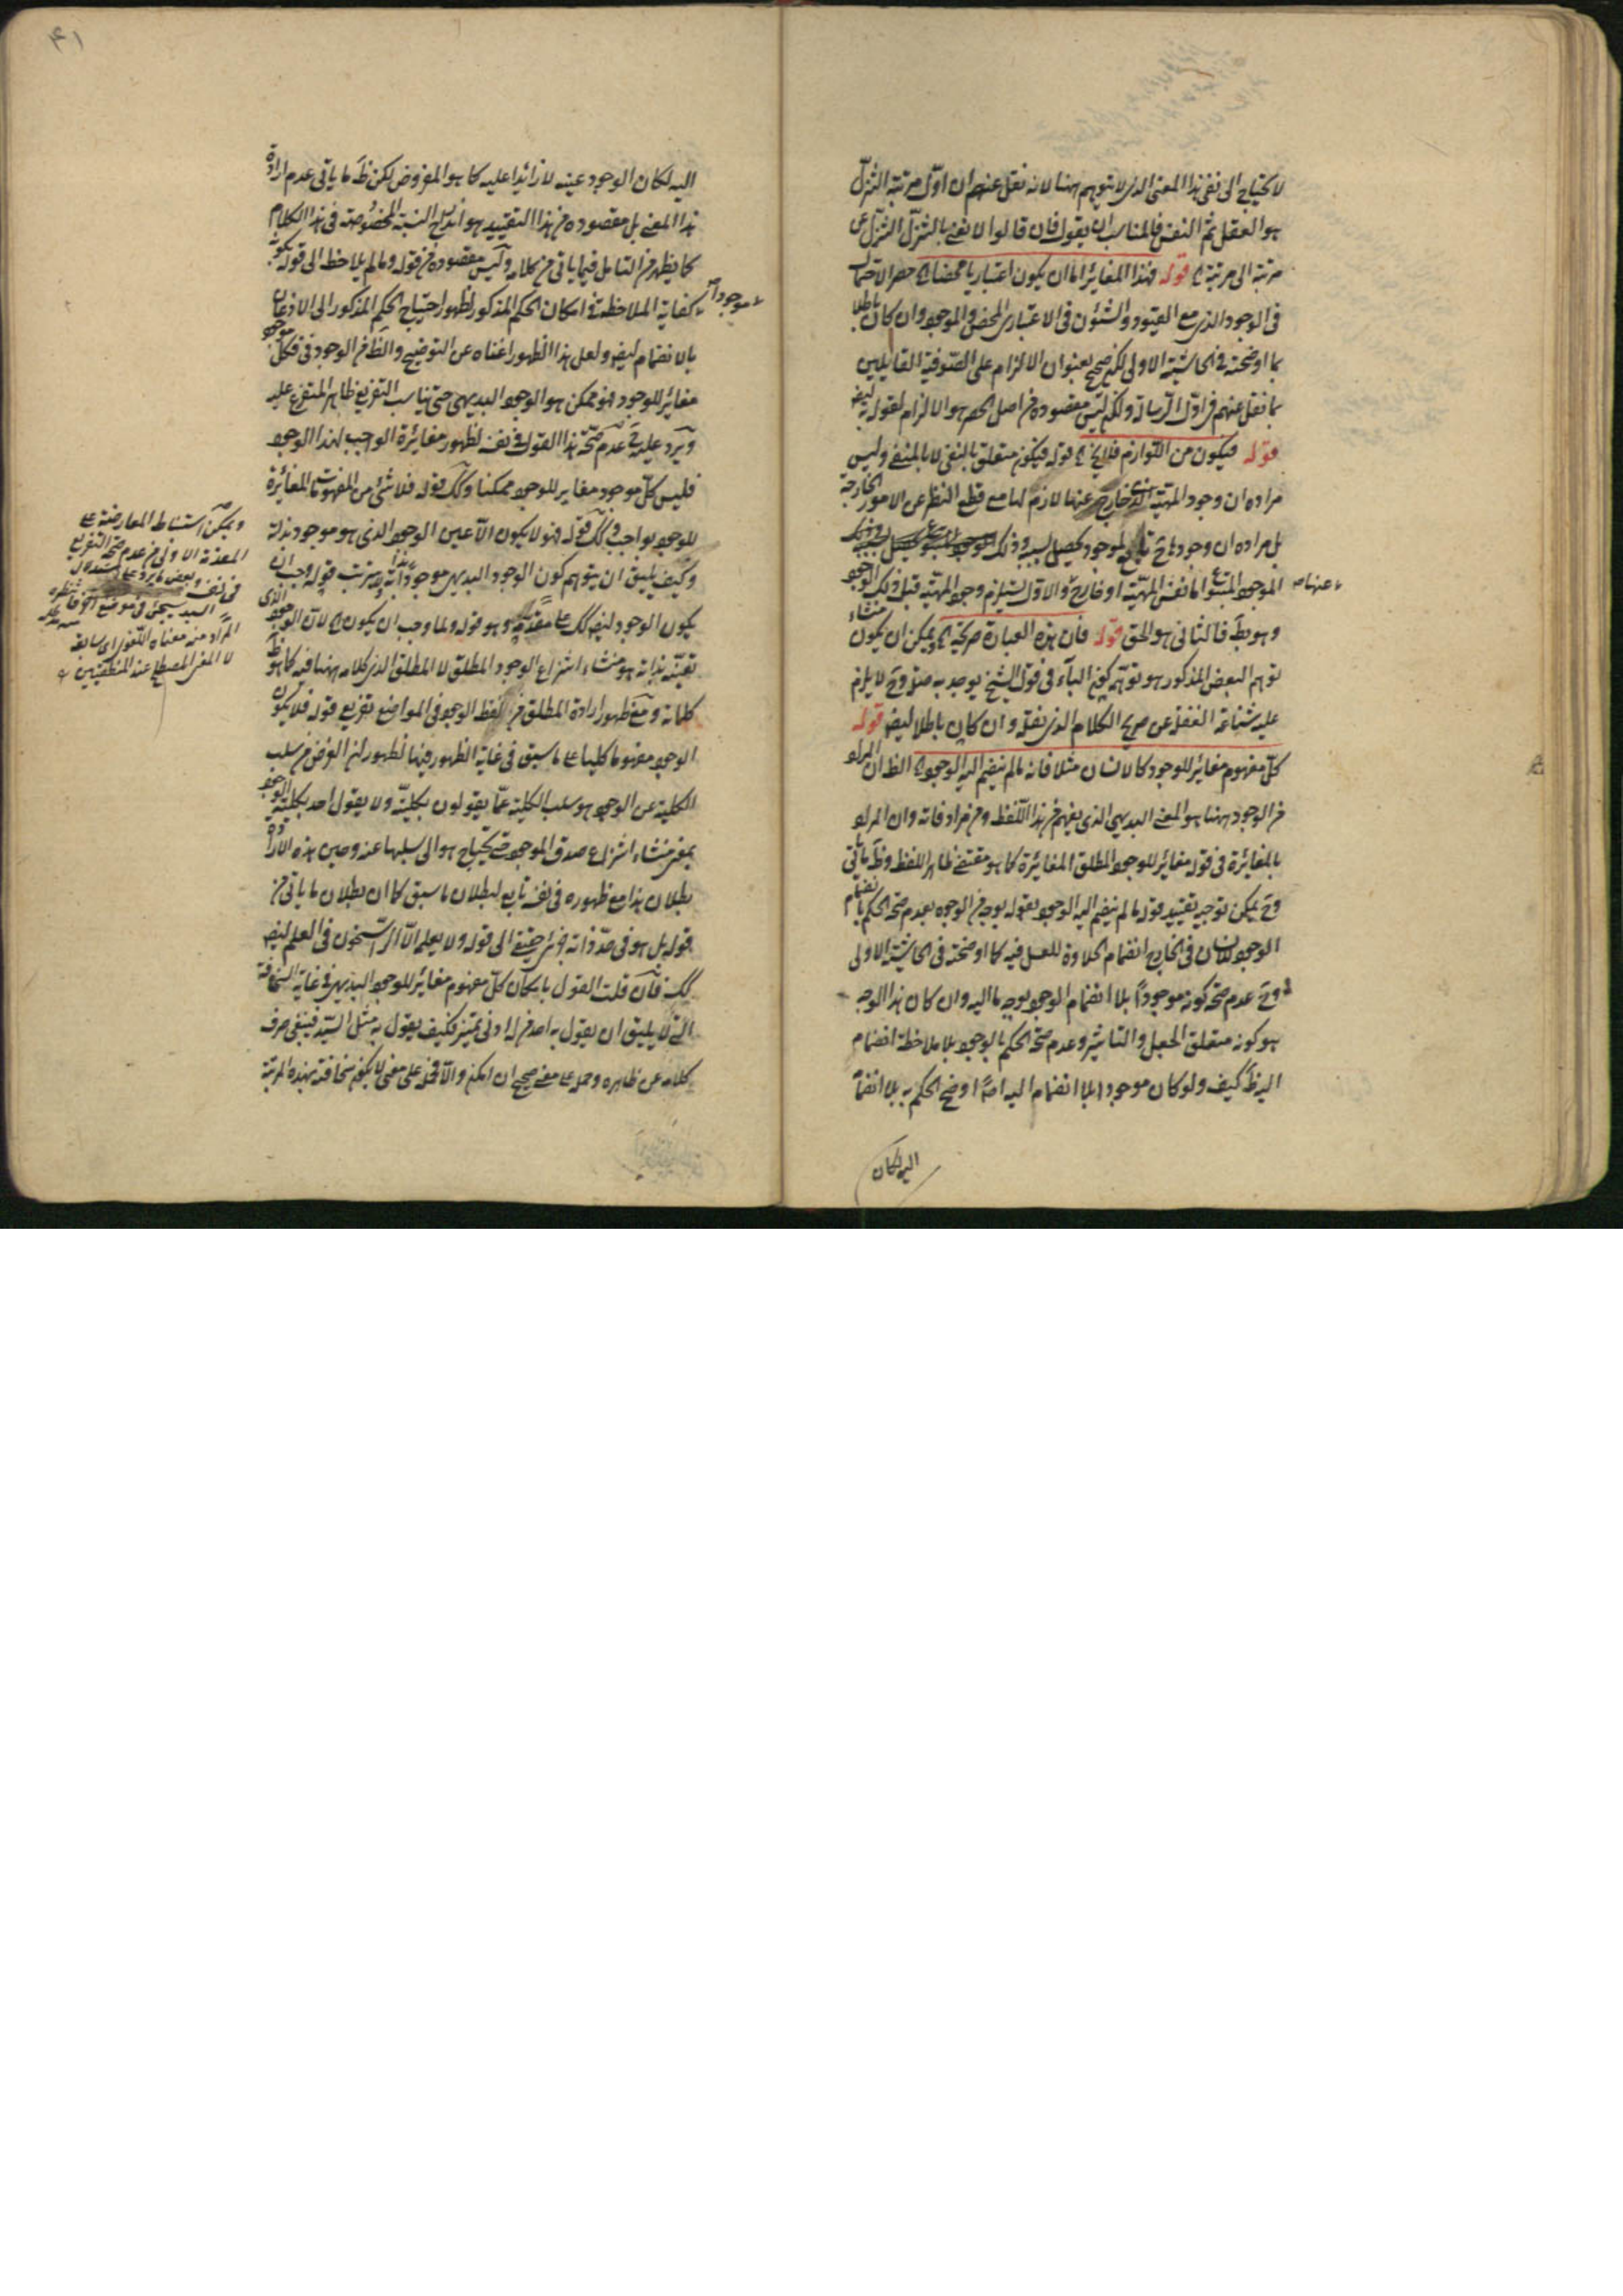 لا يحتاج الى نفى هذا المعنى الذى لا يتوهم ههنا لانه نقل عنهم ان اول مرتبة التنزل
هو العقل ثم النفس فالمناسب ان يقول فان قالوا لا نعنى بالتنزل التنزل من
مرتبة الى مرتبة قوله فهذا المغائر اما ان يكون اعتباريا محضا حصر الاحتمال
فى الوجود الذى مع القيود والشئون فى الاعتبارى المحض والموجود وان كان باطلا
بما اوضحته فى الحاشية الاولى لكن صحيح بعنوان الالزام على الصوفية القايلين
بما نقل عنهم فى اول الرسالة ولكن ليس مقصوده من اصل الحصر هو الالزام لقوله
قوله فيكون من اللوازم فلا قوله فيكون متعلق بالنفى لا بالمنفى وليس
مراده ان وجود المهية خارج عنها لازم لها مع قطع النظر عن الامور الخارجة
بل مراده ان وجودها لموجود يحصل بسببه وذلك
الموجود المتبوع اما نفس المهية او خارج والاول يستلزم وجود المهية قبل ذلك الوجود
وهو بط فالثانى هو الحق قوله فان هذه العبارة صريحة ويمكن ان يكون منشاء
توهم البعض المذكور هو توهم كون الباء فى قول الشيخ يوجد به صلة وح لا يلزم
عليه شناعة الغفلة عن صريح الكلام الذى نقله وان كان باطلا ايض قوله
كل مفهوم مغائر للوجود كالانسان مثلا فانه ما لم ينضم اليه الوجود الظ ان المراد
من الوجود ههنا هو المعنى البديهى الذى يفهم من هذا اللفظ ومن مرادفاته وان المراد
بالمغائرة فى قوله مغائر للوجود المطلق المغائرة كما هو مقتضى ظاهر اللفظ وظ ما يأتى
وح يمكن توجيه تقييد قوله ما لم ينضم اليه الوجود بقوله بوجه من الوجوه بعدم صحة الحكم بانضمام
الوجود للانسان فى الخارج انضمام الحلاوة للعسل فيه كما اوضحته فى الحاشية الاولى
وح عدم صحة كونه موجودا بلا انضمام الوجود بوجه ما اليه وان كان هذا الوجه
هو كونه متعلق الجعل والتاثير وعدم صحة الحكم بالوجود بلا ملاحظة انضمام
اليه ظ كيف ولو كان موجودا بلا انضمام اليه اصلا او صح الحكم به بلا انضمام
اليه لكان
عنها
اليه لكان الوجود عينه لا زائدا عليه كما هو المفروض لكن ظ ما ياتى عدم ارادة
هذا المعنى بل مقصوده من هذا التقييد هو اندراج النسبة المخصوصة فى هذا الكلام
كما يظهر من التامل فيما ياتى من كلامه وليس مقصوده من قوله وما لم يلاحظ الى قوله بكونه
كفاية الملاحظة فى امكان الحكم المذكور لظهور احتياج الحكم المذكور الى الاذعان
موجودا
بالانضمام ايض ولعل هذا الظهور اغناه عن التوضيح والظ من الوجود فى فكل موجود
مغائر للوجود فهو ممكن هو الوجود البديهى حتى يناسب التفريع ظاهر المتفرع عليه
ويرد عليه ح عدم صحة هذا القول فى نفسه لظهور مغائرة الواجب لهذا الوجود
فليس كل موجود مغاير للوجود ممكنا وكك قوله فلا شئ من المفهومات المغائرة
للوجود بواجب وكك قوله فهو لا يكون الا عين الوجود الذى هو موجود بذاته
وكيف يليق ان يتوهم كون الوجود البديهى موجودا بذاته ويترتب قوله وجب ان
يكون الوجود ايض كك على مقدمة وهو قوله ولما وجب ان يكون لان الوجود الذى
تعينه بذاته هو منشاء انتزاع الوجود المطلق لا المطلق الذى كلامه ههنا فيه كما هو ظ
كلماته ومع ظهور ارادة المطلق من لفظ الوجود فى المواضع تفريع قوله فلا يكون
الوجود مفهوما كليا على ما سبق فى غاية الظهور فيها لظهور ان الغرض من سلب
الكلية عن الوجود هو سلب الكلية عما يقولون بكليته ولا يقول احد بكلية الوجود
بمعنى منشاء انتزاع صدق الموجود حتى يحتاج هو الى سلبها عنه وحين هذه الارادة
بطلان هذا مع ظهوره فى نفسه تابع لبطلان ما سبق كما ان بطلان ما ياتى من
قوله بل هو فى حد ذاته جزئى حقيقى الى قوله ولا يعلمه الا الراسخون فى العلم ايض
كك فان قلت القول بامكان كل مفهوم مغائر للوجود البديهى فى غاية السخافة
التى لا يليق ان يقول به احد من له ادنى تميز فكيف يقول به مثل السيد فينبغى صرف
كلامه عن ظاهره وحمله على معنى صحيح ان امكن والا فحمله على معنى لا يكون سخافته بهذه المرتبة
ويمكن استنباط المعارضة على
المقدمة الاولى من عدم صحة التفريع
فى نفسه بعض ما يرد على استدلال
السيد سيجئ فى موضع اخر فانتظره
المراد منه معناه اللغوى اى سابقه
لا المعنى المصطلح عند المنطقيين